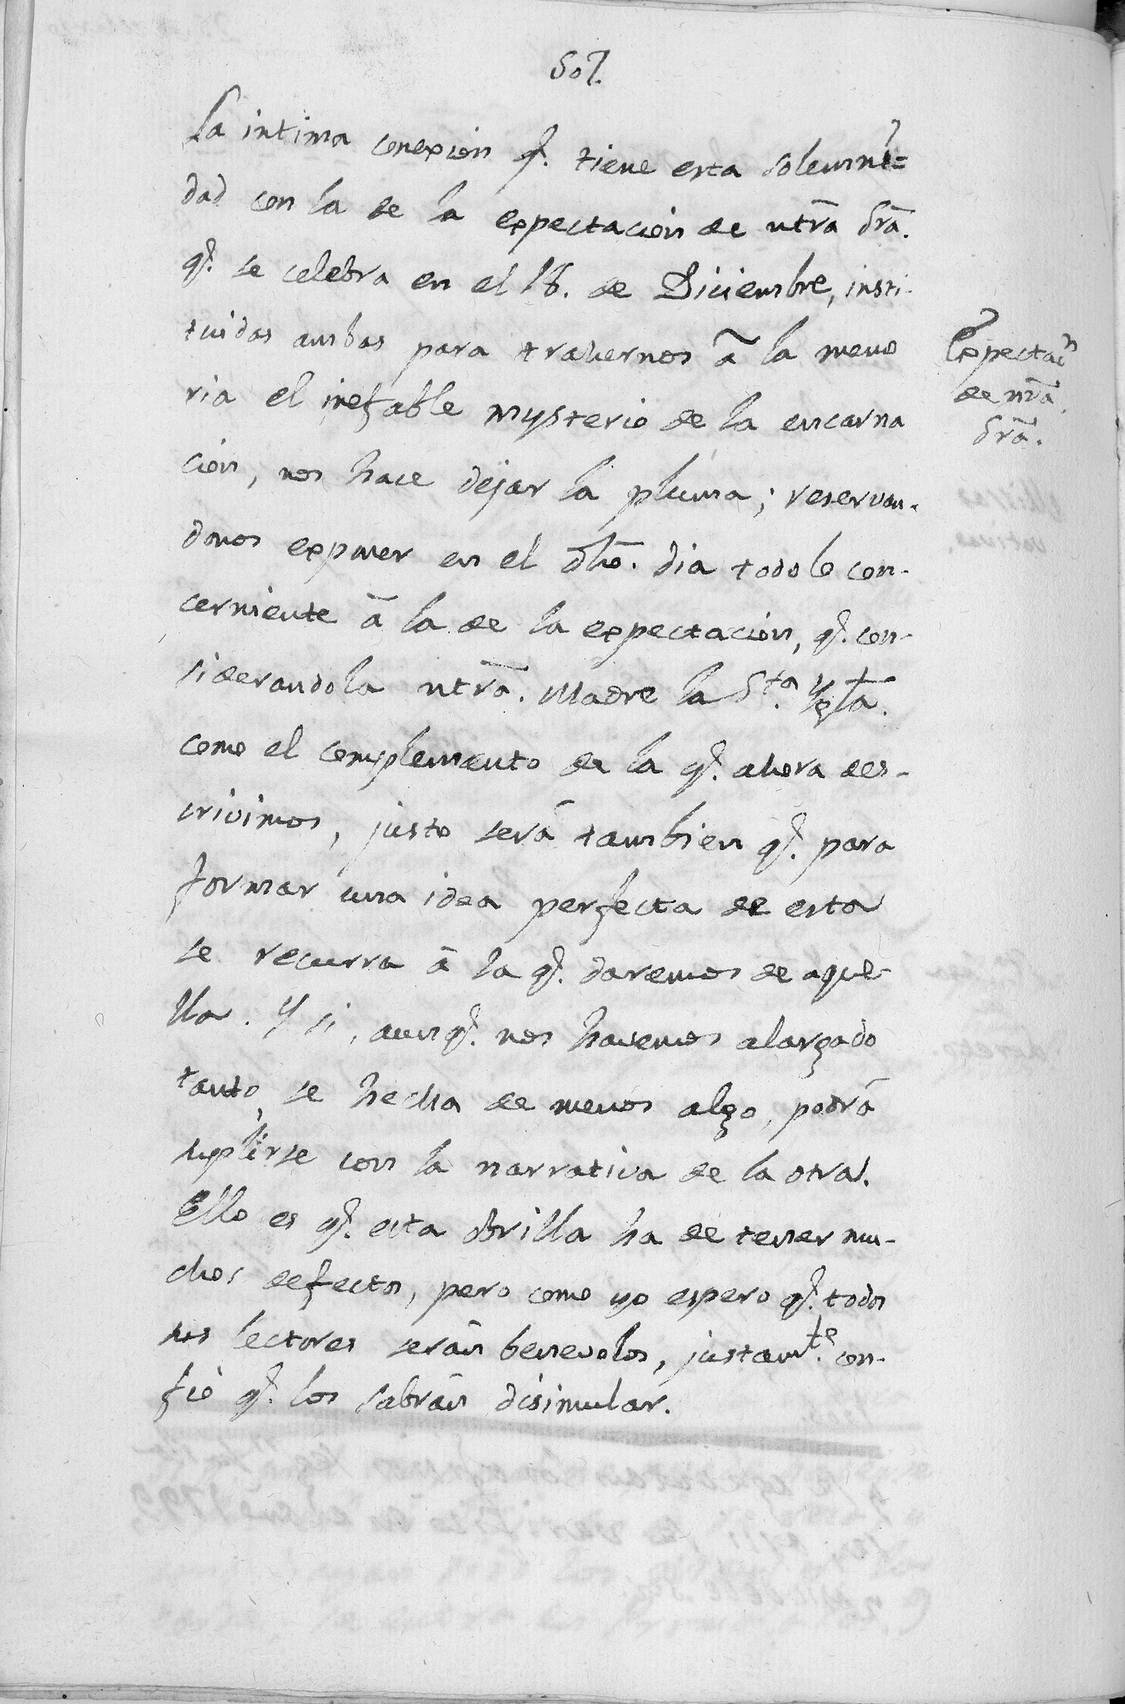 507.
La intima conexion q.ᵉ tiene esta solemni=
dad con la de la expectacion de ntrã Srã.
q.ᵉ se celebra en el 18. de Diciembre, insti-
tuidas ambas para trahernos â la memo
ria el inefable mysterio de la encarna
cion, nos hace dejar la pluma; reservan-
donos exponer en el dhõ. dia todo lo con-
cerniente â la de la expectacion, q.ᵉ con-
siderandola ntrã. Madre la S.ᵗᵃ Yglã.
como el complemento de la q.ᵉ ahora des-
crivimos, justo será tambien q.ᵉ para
formar una idea perfecta de esta
se recurra â la q.ᵉ daremos de aque-
lla. Y si, aunq.ᵉ nos havemos alargado
tanto, se hecha de menos algo, podrá
suplirse con la narrativa de la otra.
Ello es q.ᵉ esta obrilla ha de tener mu-
chos defectos, pero como yo espero q.ᵉ todos
sus lectores serán benevolos, justam.ᵗᵉ con-
fio q.ᵉ los sabrán disimular.
Expectac.ⁿ
de nrã.
Srã.